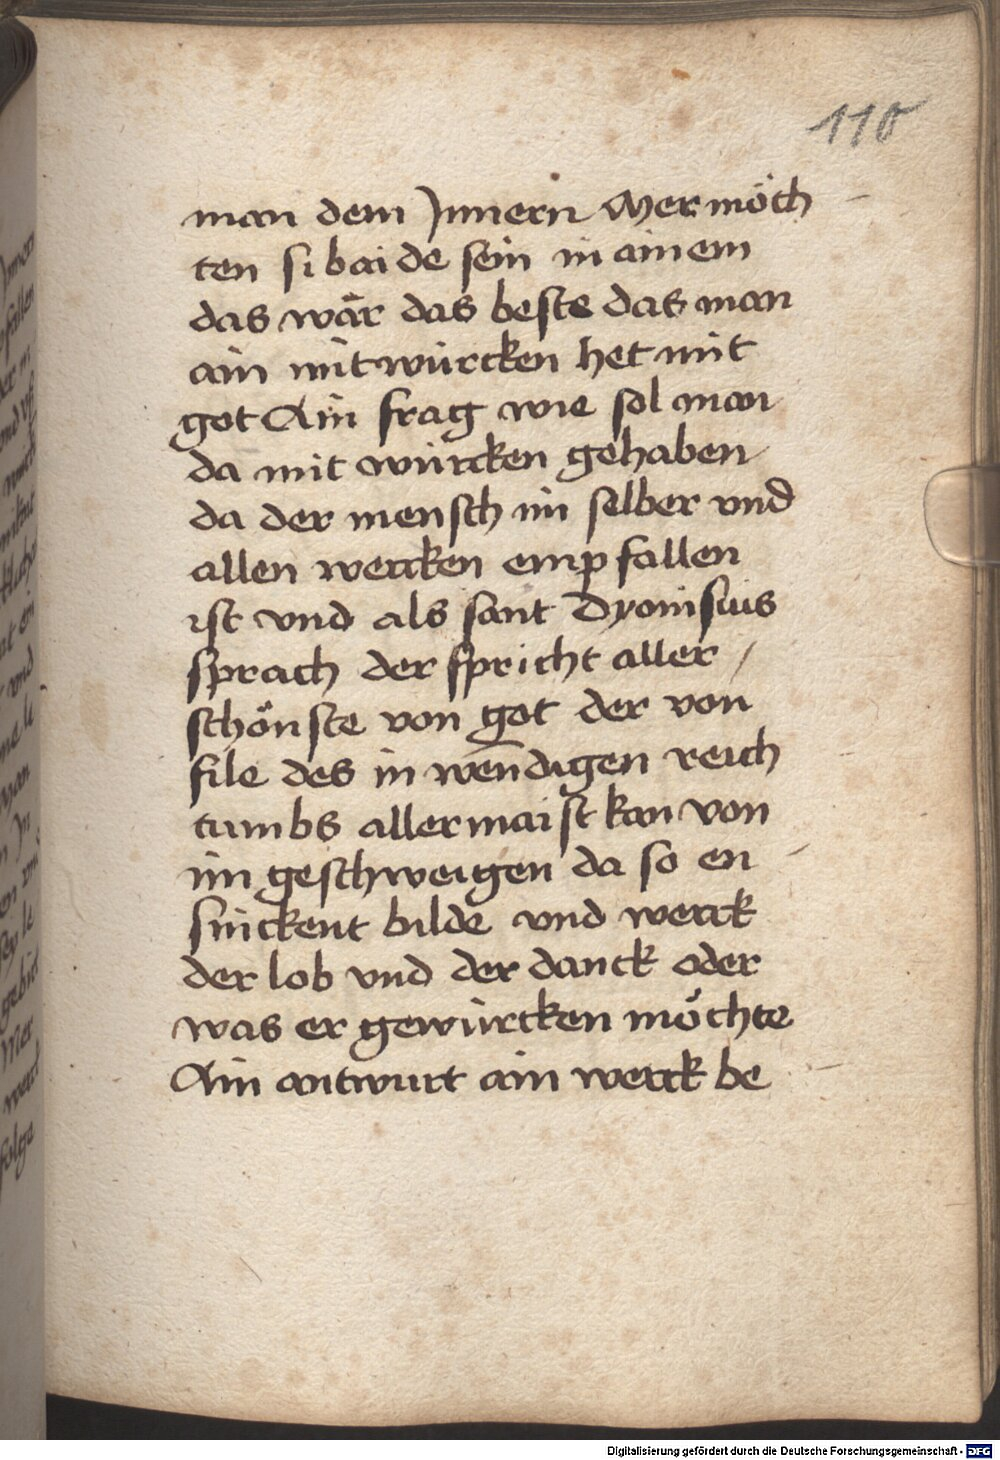 110
man dem Jnnern Mer möch
ten si baide sein in ainem
das wär das beste das man
ain mitwürcken het mit
got Ain frag wie sol man
da mit würcken gehaben
da der mensch im selber vnd
allen wercken empfallen
ist vnd als sant Dyonisius
sprach der spricht aller
schönste von got der von
file des in wendigen reich
tumbs allermaist kan von
im geschweigen da so en
sinckent bilde vnd werck
der lob vnd der danck oder
was er gewürcken möchte
Ain antwurt ain werck be
Digitalisierung gefördert durch die Deutsche Forschungsgemeinschaft - DFG